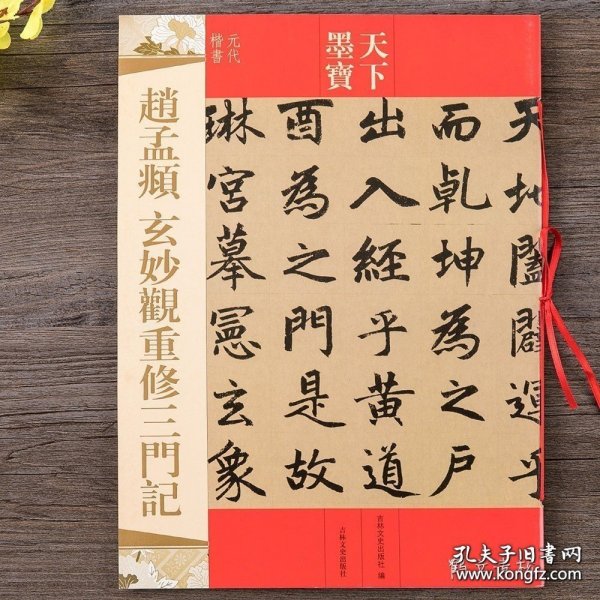 元代
楷書
天下
墨寶
趙孟頫 玄妙觀重修三門記
天地闔闢運乎
而乹坤為之户
出入經乎黄道
酉為之門是故
琳宮摹憲玄象
吉林文史出版社 編
吉林文史出版社
孔夫子旧書网
www.kongfz.com